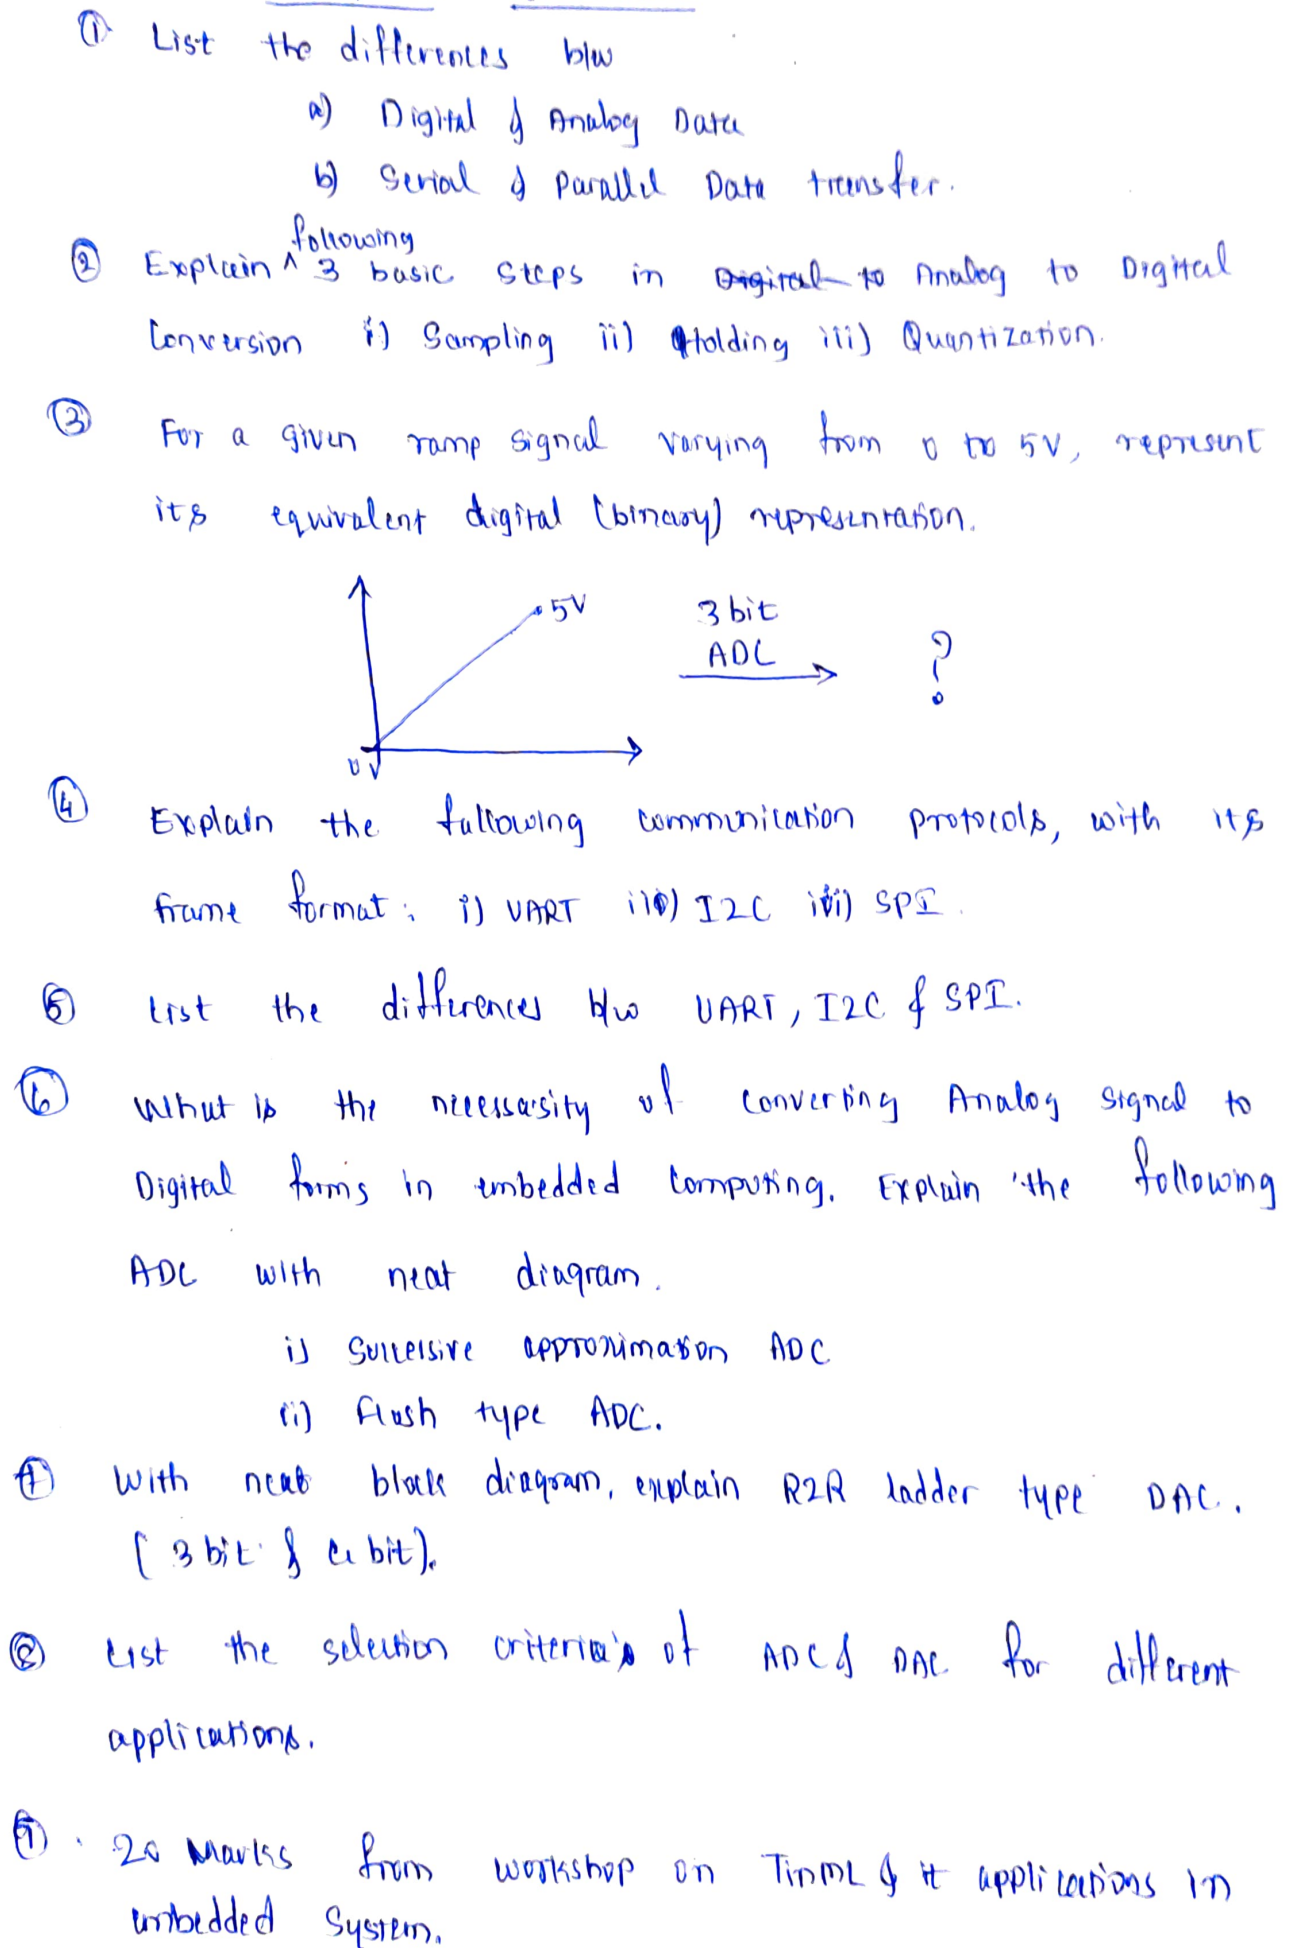 ① List the differences b/w
a) Digital & Analog Data
b) Serial & Parallel Data transfer.
following
② Explain ^ 3 basic steps in Digital to Analog to Digital
Conversion i) Sampling ii) Holding iii) Quantization.
③ For a given ramp signal varying from 0 to 5V, represent
its equivalent digital (binary) representation.
5V
3 bit
ADC
?
0V
④ Explain the following communication protocols, with its
frame format: i) UART ii) I2C iii) SPI.
⑤ List the differences b/w UART, I2C & SPI.
⑥ What is the necessasity of converting Analog signal to
Digital forms in embedded computing. Explain the following
ADC with neat diagram.
i) Successive approximation ADC
ii) Flash type ADC.
⑦ With neat block diagram, explain R2R ladder type DAC.
(3 bit & 4 bit).
⑧ List the selection criteria's of ADC & DAC for different
applications.
⑨ 20 Marks from workshop on TinML & it applications in
embedded System.